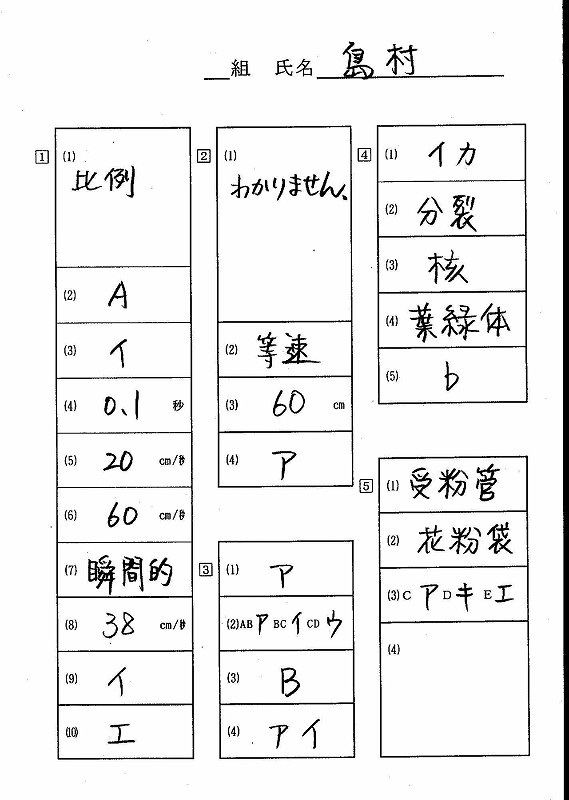 組 氏名 島村
1
(1)
比例
(2) A
(3) イ
(4) 0.1 秒
(5) 20 cm/秒
(6) 60 cm/秒
(7) 瞬間的
(8) 38 cm/秒
(9) イ
(10) エ
2
(1)
わかりません、
(2) 等速
(3) 60 cm
(4) ア
3
(1) ア
(2)AB ア BC イ CD ウ
(3) B
(4) アイ
4
(1) イカ
(2) 分裂
(3) 核
(4) 葉緑体
(5) b
5
(1) 受粉管
(2) 花粉袋
(3) C ア D キ E エ
(4)